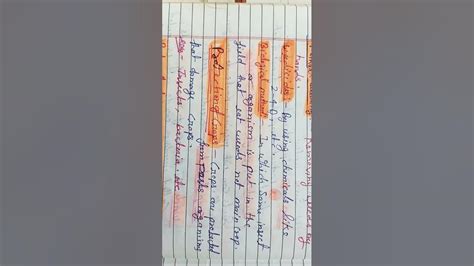 Removing weeds by
hands.
Weedicides - by using chemicals like
2-4-D, etc.
Biological method - In which some insect
or organism is put in the
field that eat weeds not main crop.
Protection of Crops - Crops are protected
from pests organisms
that damage Crops.
eg Insects, bacteria, etc